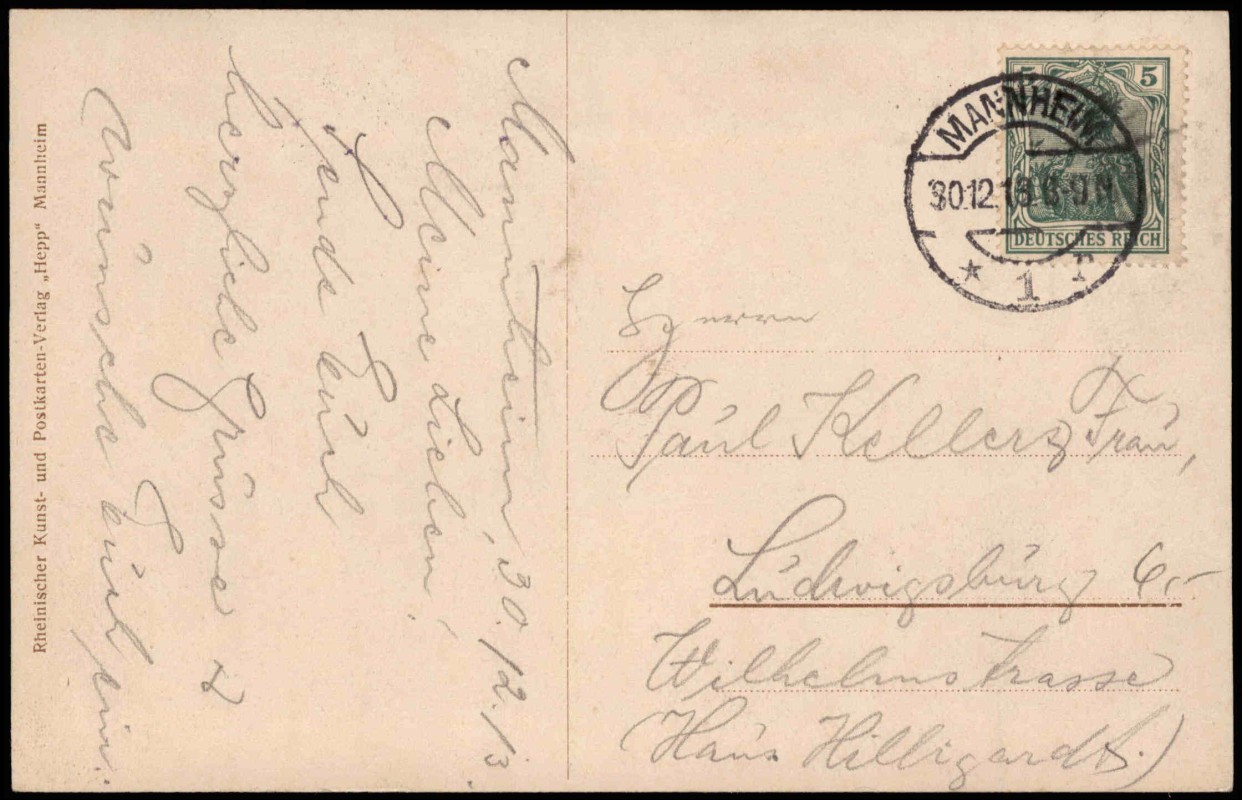 Mannheim, 30./12.13.
Meine Lieben,
Sende Euch
herzliche Grüsse &
wünsche Euch ein
Rheinischer Kunst- und Postkarten-Verlag „Hepp" Mannheim
5 5
DEUTSCHES REICH
MANNHEIM
30.12.
* 1
Herrn
Paul Kellers Frau,
Ludwigsburg
Wilhelmstrasse
Haus Hilligardt.)